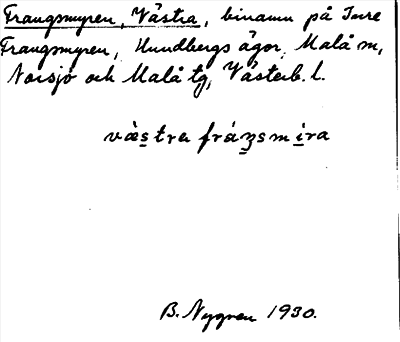 Frangsmyren, Västra, binamn på Inre
Frangsmyren, Hundbergs ägor, Malå sn,
Norsjö och Malå tg, Västerb. l.
våstra fráŋsmira
B. Nygren 1930.